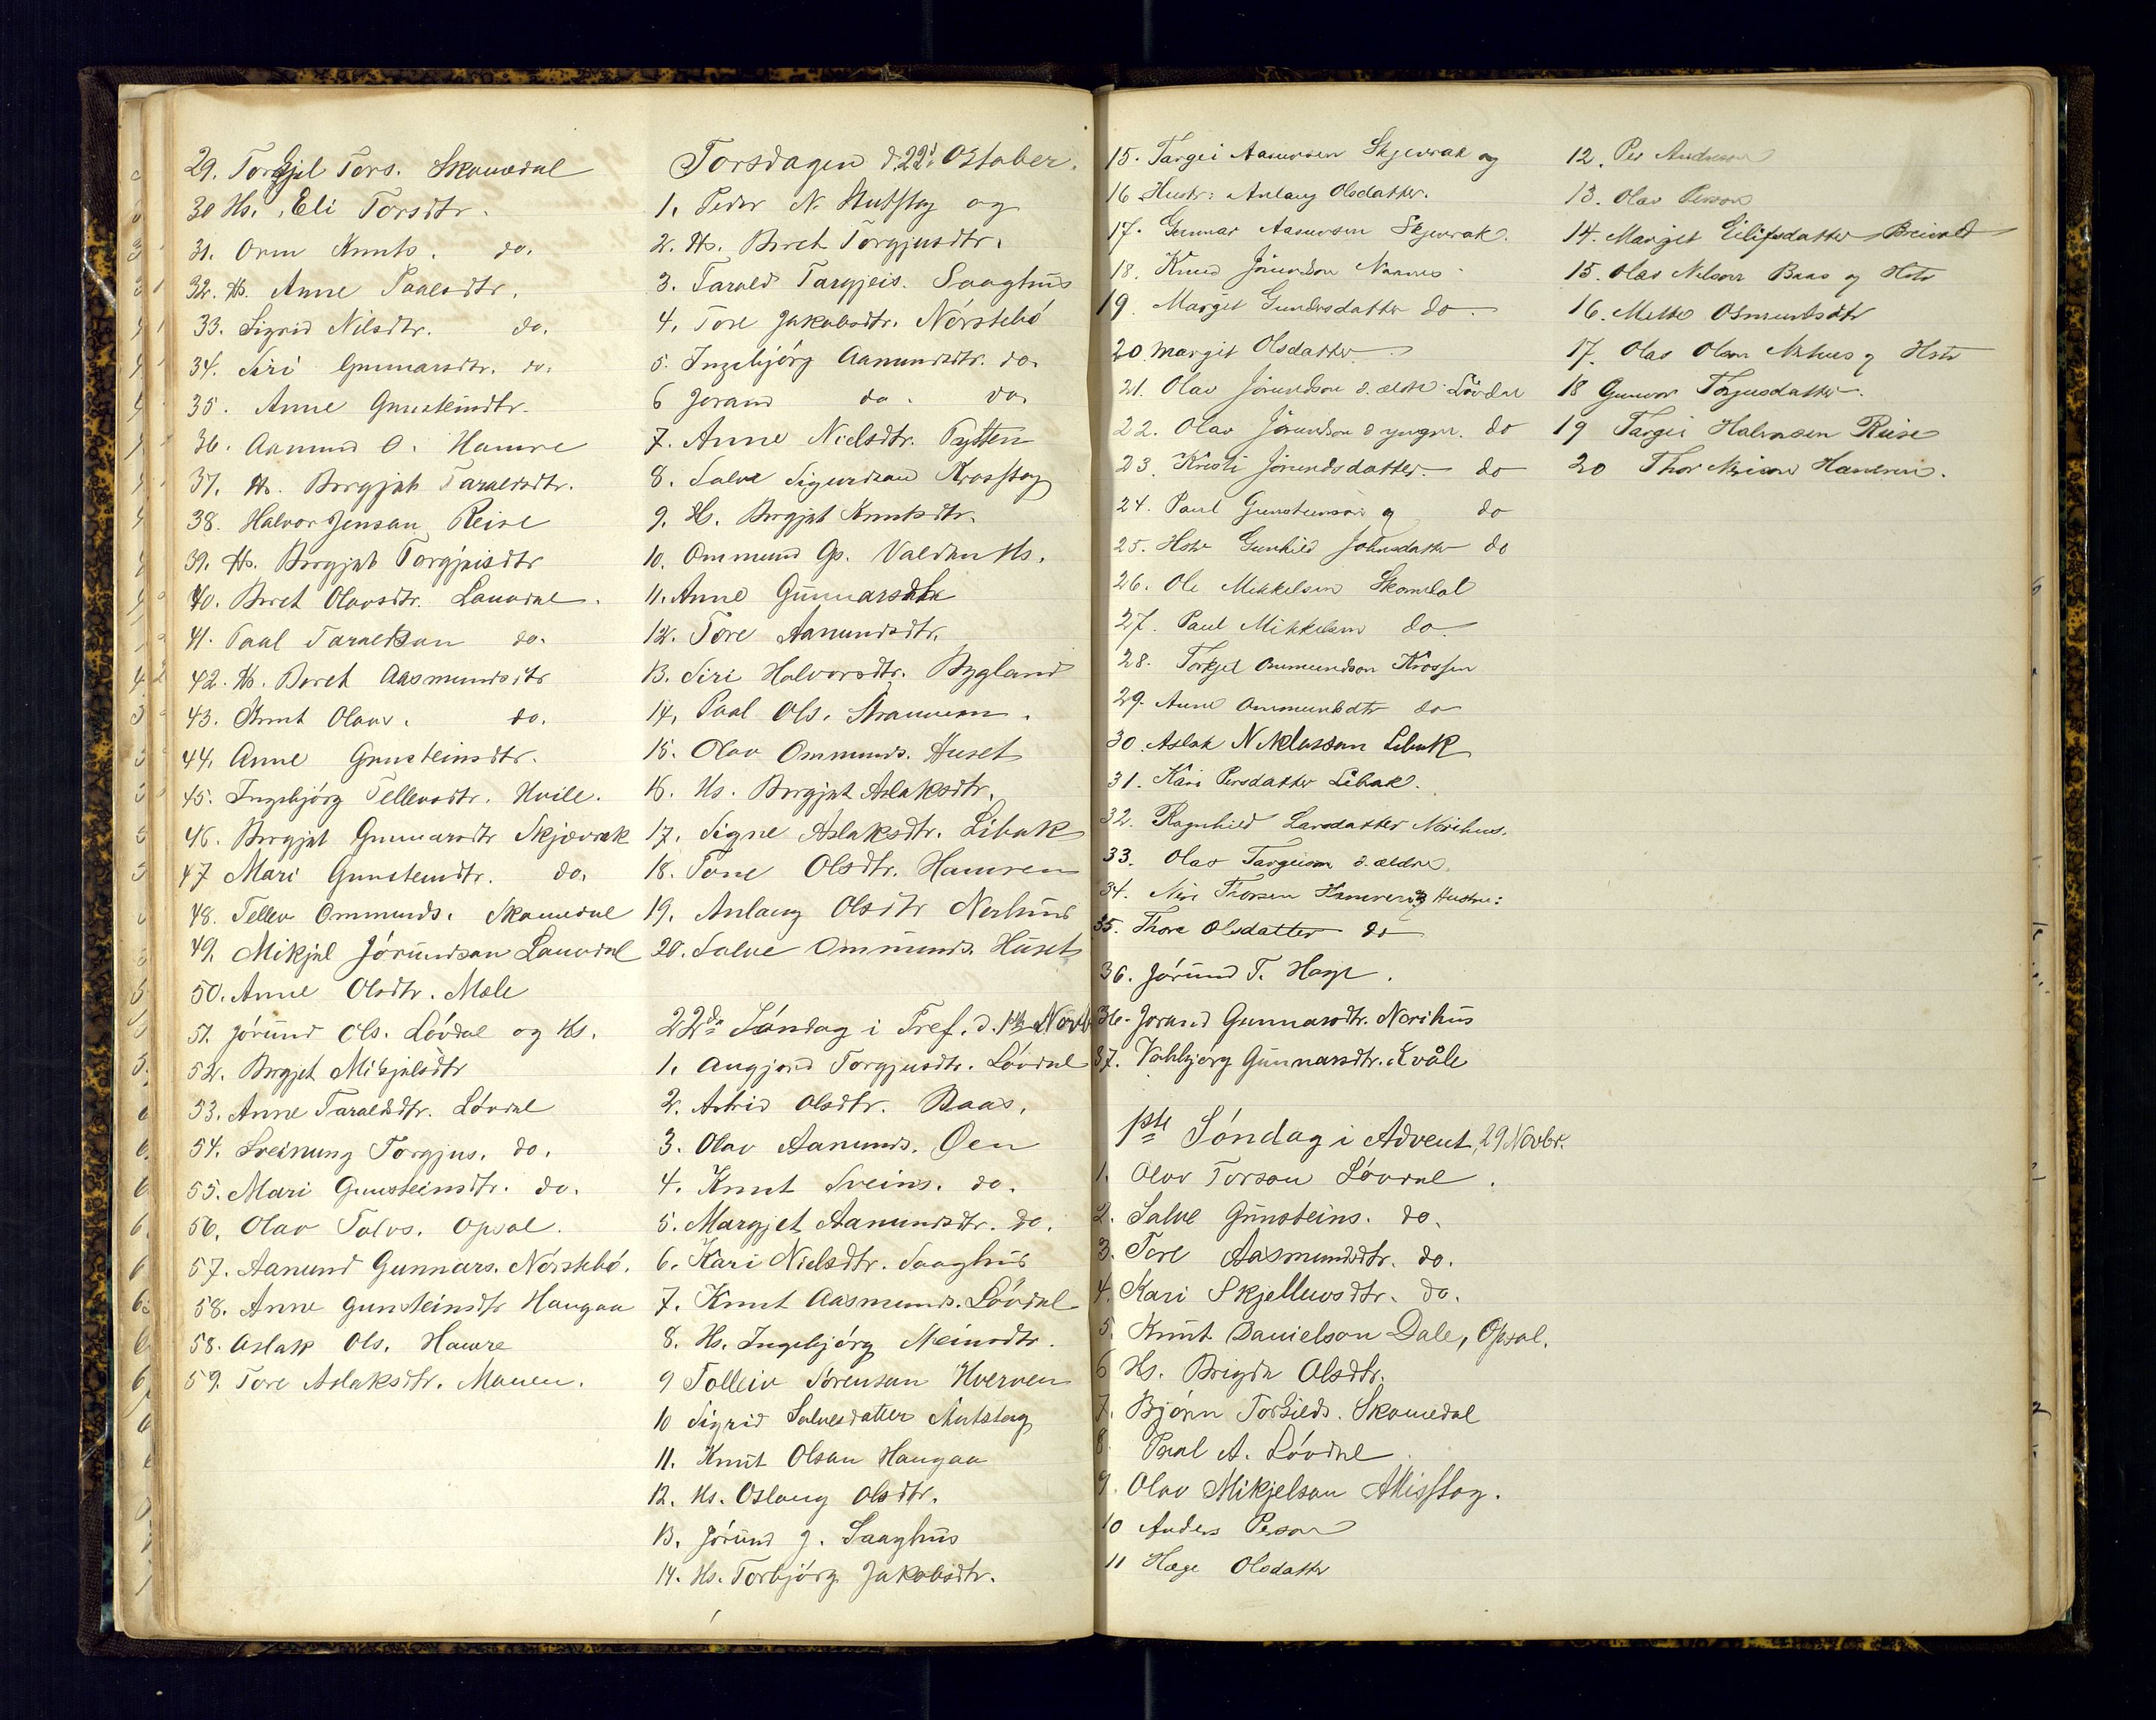 29. Torkjel Tors. Skomedal
30 Hs. Eli Torsdtr.
31. Orm Knuts. do.
32. Hs. Anne Paalsdtr.
33. Sigrid Nilsdtr. do.
34. Siri Gunnarsdtr. do.
35. Anne Gunsteindtr.
36. Aamund O. Hamre
37. Hs. Borgjet Taraldsdtr.
38. Halvor Jensan Reise
39. Hs. Borgjet Torgjeisdtr
40. Beret Olavsdtr. Lauvdal.
41. Paal Taraldsan do.
42. Hs. Beret Aasmundsdtr
43. Knut Olavs. do.
44. Anne Gunsteinsdtr.
45. Ingebjórg Tellevsdtr. Hvile.
46. Borgjet Gunnarsdtr Skjævrak
47 Mari Gunsteindtr. do.
48. Tellev Ommunds. Skomedal
49. Mikjel Jórundsan Lauvdal
50. Anne Olsdtr. Mole
51. Jórund Ols. Lóvdal og Hs.
52. Borgjet Mikjelsdtr
53. Anne Taraldsdtr. Lóvdal
54. Sveinung Torgjus. do.
55. Mari Gunsteinsdtr. do.
56. Olav Salvs. Opsal.
57. Aanund Gunnars. Nórstebó.
58. Anne Gunsteinsdtr Haugaa
58. Aslak Ols. Hamre
59. Tore Aslaksdtr. Mouen.
Torsdagen d. 22d. Oktober.
1. Peder N. Stutstog og
2. Hs. Beret Torgjusdtr.
3. Tarald Targjeis. Saaghus
4. Tore Jakobsdtr. Nórstebó
5. Ingebjórg Aanundsdtr. do.
6 Jorand do. do.
7. Anne Nielsdtr. Tytten
8. Salve Sigurdsan Krosstog
9. Hs. Borgjet Knutsdtr.
10. Ommund Gs. Valdan Hs.
11. Anne Gunnarsdtr
12. Tore Aanundsdtr.
13. Siri Halvorsdtr. Bygland
14. Paal Ols. Straumen.
15. Olav Ommunds. Huset
16. Hs. Borgjet Aslaksdtr.
17. Signe Aslaksdtr. Libak
18. Tone Olsdtr. Hamren
19. Anlaug Olsdtr Nerhus
20. Salve Ommunds. Huset
22de Sóndag i Tref. d. 1ste Novb
1. Angjerd Torgjusdtr. Lóvdal
2. Astrid Olsdtr. Baas.
3. Olav Aanunds. Øen
4. Knut Sveins. do.
5. Margjet Aanundsdtr. do.
6. Kari Nielsdtr. Saaghus
7. Knut Aasmunds. Lóvdal
8. Hs. Ingebjórg Steinsdtr.
9 Tolleiv Sórensan Hverven
10 Sigrid Salvesdatter Stutstog
11. Knut Olsan Haugaa
12. Hs. Oslaug Olsdtr.
13. Jórund J. Saaghus
14. Hs. Torbjórg Jakobsdtr.
15. Targei Aanunsen Skjevrak og
16 Hustr: Anlaug Olsdatter.
17. Gunnar Aanunsen Skjevrak.
18. Knud Jórundsen
19. Margit Gundersdatter do
20. Margit Olsdatter
21. Olav Jórundsen d. ældre Lóvdal
22. Olav Jórundsen d yngre. do
23. Kristi Jórundsdatter do
24. Paul Gunsteinson og do
25. Hstr Gunhild Johnsdatter do
26. Ole Mikkelsen Skomdal
27. Paul Mikkelsen do.
28. Torkjel Ommundson Krossen
29. Anne Ommundsdtr do
30. Aslak Niklassan Libak
31. Kari Persdatter Libak.
32. Ragnhild Larsdatter Norihus.
33. Olav Targeison d. ældre
34. Thorsen Hamren og Hustru:
35. Thora Olsdatter do
36. Jórund T. Hage.
36. Jorand Gunnarsdtr. Norihus
37. Valbjórg Gunnarsdtr. Kvåle
1ste Sóndag i Advent, 29 Novbr.
1. Olav Torsan Lóvdal.
2. Salve Gunsteins. do.
3. Tore Aasmundsdtr. do.
4. Kari Skjellevsdtr. do.
5. Knut Danielson Dale, Opsal.
6 Hs. Brigda Olsdtr.
7. Bjórn Torkields. Skomedal
8 Paal A. Lóvdal
9. Olav Mikjelsan Misstog.
10 Anders Person
11 Hæge Olsdatter
12. Per Anderson
13. Olav Person
14. Margit Eilifsdatter Breivold
15. Olav Nilson Baas og Hstr
16. Mette Osmundsdtr
17. Olas Olsen Nehus og Hstr
18 Gunvor Torjusdatter.
19 Targei Halvorsen Reise
20 Thor Hamren.